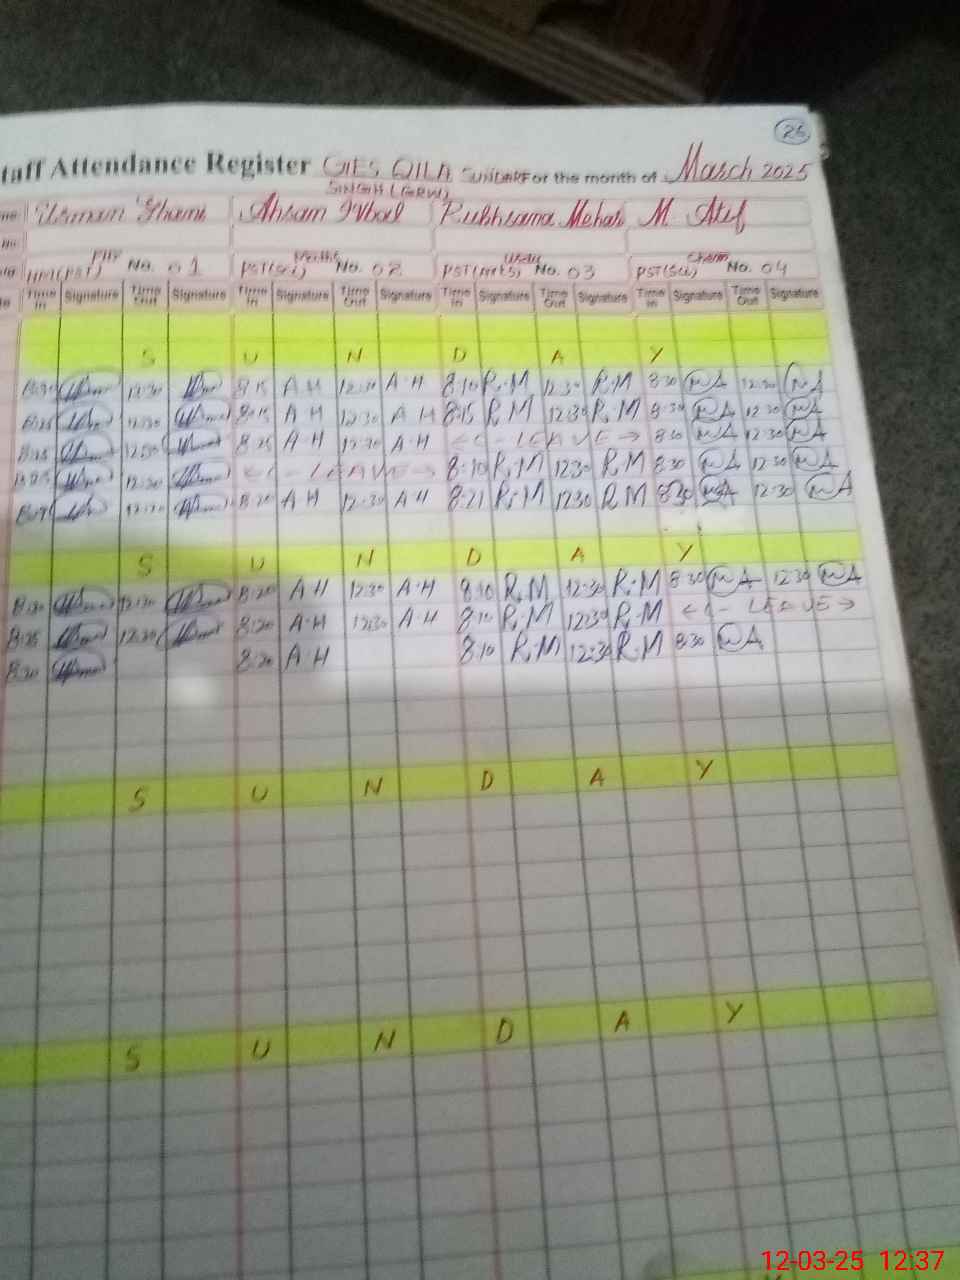 26
taff Attendance Register GIES QILA SUNDAR For the month of March 2025
SINGH (GRW)
me Usman Ghani Ahsam Iqbal Rukhsana Mehar M. Atif
No.
PHY Maths Urdu Chem
HM(PST) No. 01 PST(Sci) No. 02 PST(Arts) No. 03 PST(Sci) No. 04
Time In Signature Time Out Signature Time In Signature Time Out Signature Time In Signature Time Out Signature Time In Signature Time Out Signature
S U N D A Y
12:30 8:15 A H 12:30 A·H 8:10 R·M 12:30 R·M 8:30 MA 12:30 MA
8:25 12:30 8:15 A H 12:30 A H 8:15 R.M 12:30 R·M 8:30 MA 12:30 MA
8:25 12:30 8:25 A·H 12:30 A·H LEAVE 8:30 MA 12:30 MA
8:25 12:30 LEAVE 8:10 R.M 12:30 R.M 8:30 MA 12:30 MA
12:30 8:20 A H 12:30 A·H 8:21 R·M 12:30 R.M 8:30 MA 12:30 MA
S U N D A Y
8:20 A·H 12:30 A·H 8:10 R.M 12:30 R.M 8:30 MA 12:30 MA
8:25 12:30 8:20 A·H 12:30 A·H 8:10 R·M 12:30 R.M LEAVE
8:30 8:20 A·H 8:10 R.M 12:30 R.M 8:30 MA
S U N D A Y
S U N D A Y
12-03-25 12:37